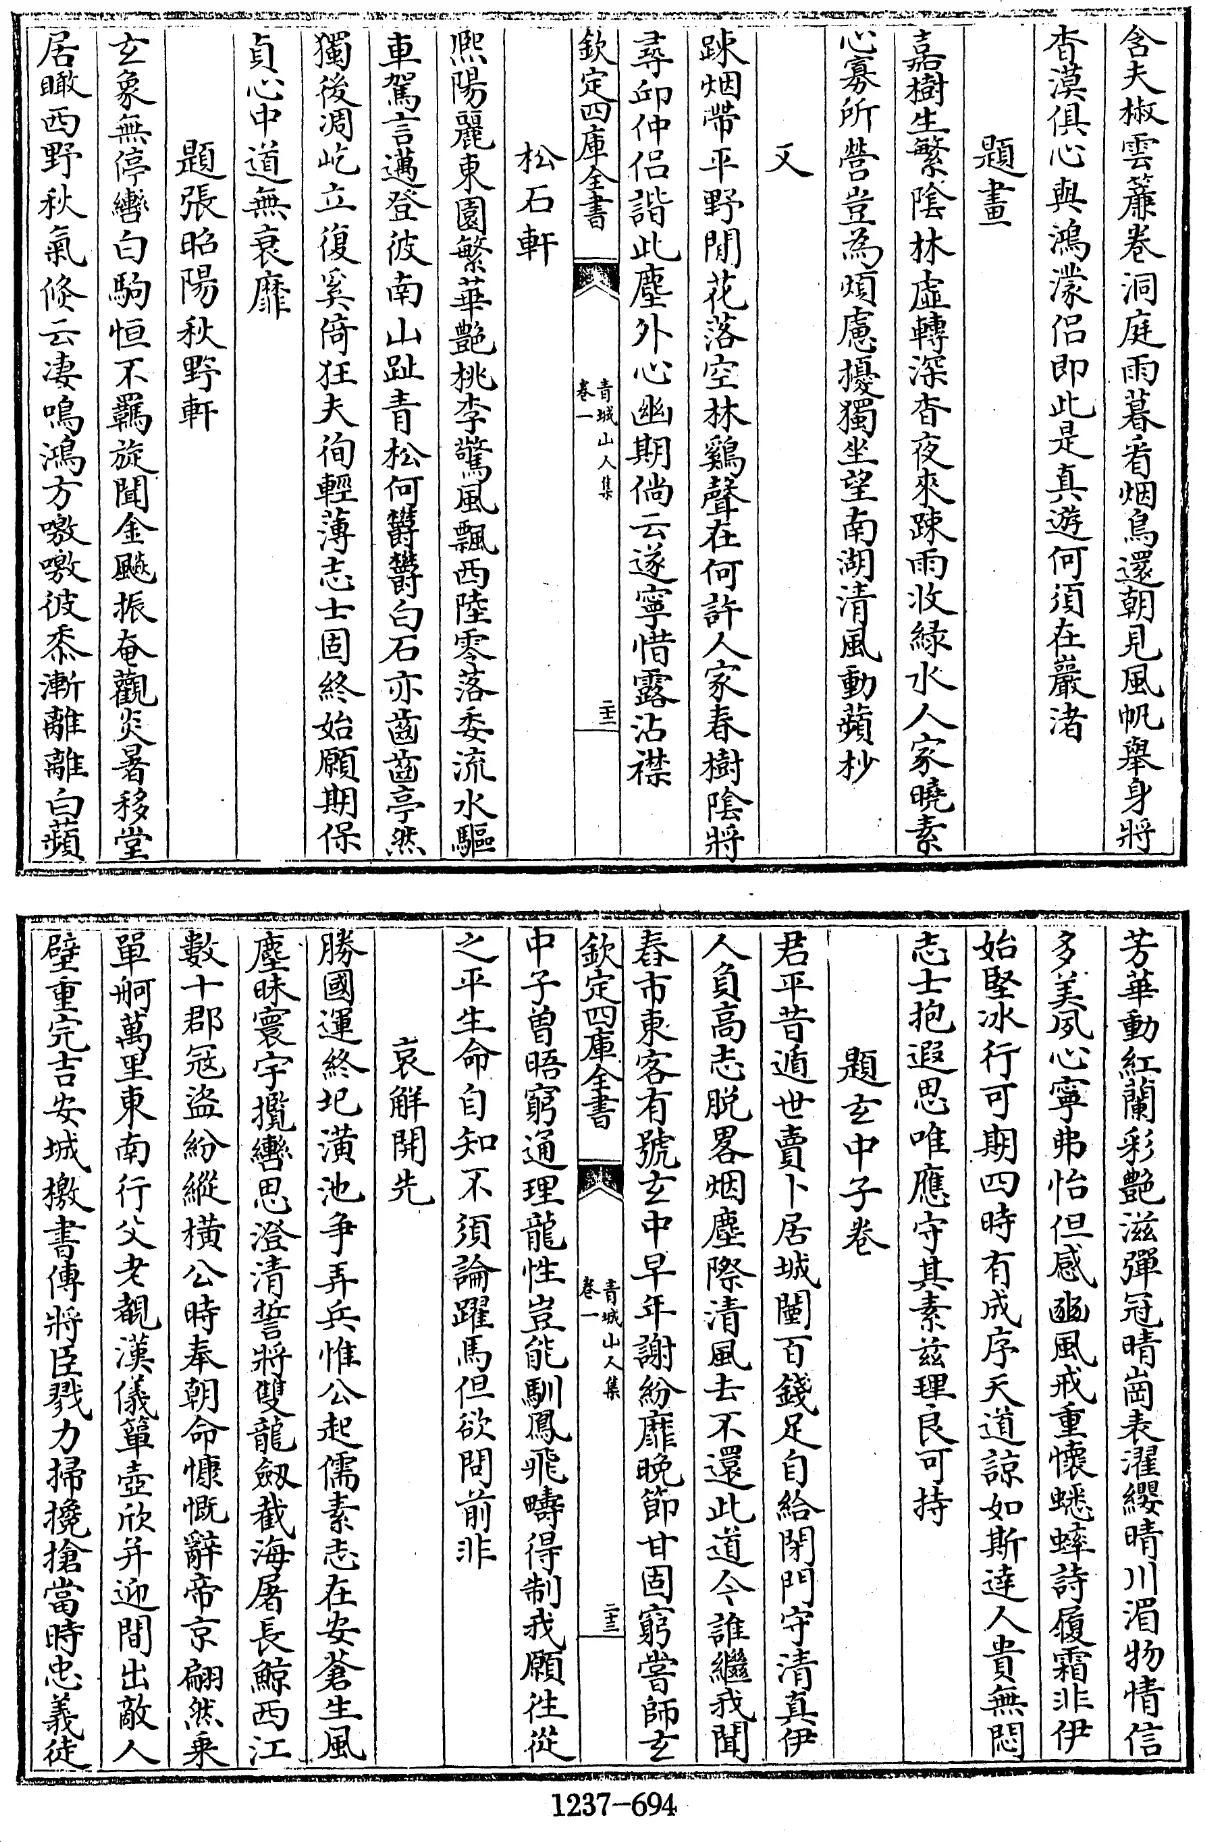 含夫椒雲簾卷洞庭雨暮看烟鳥還朝見風帆舉身將
杳漠俱心與鴻濛侣即此是真遊何須在巖渚
題畫
嘉樹生繁陰林虛轉深杳夜來踈雨收緑水人家曉素
心寡所營豈為煩慮擾獨坐望南湖清風動蘋杪
又
踈烟帶平野閒花落空林鷄聲在何許人家春樹陰將
尋邱仲侣諧此塵外心幽期倘云遂寧惜露沾襟
欽定四庫全書
青城山人集
卷一
二十二
松石軒
熙陽麗東園繁華艶桃李驚風飄西陸零落委流水驅
車駕言邁登彼南山趾青松何欝欝白石亦齒齒亭然
獨後凋屹立復奚倚狂夫徇輕薄志士固終始願期保
貞心中道無衰靡
題張昭陽秋野軒
玄象無停轡白駒恒不羈旋聞金飈振奄觀炎暑移堂
居瞰西野秋氣倐云凄鳴鴻方嗷嗷彼黍漸離離白蘋
芳華動紅蘭彩艶滋彈冠晴崗表濯纓晴川湄物情信
多美夙心寧弗怡但感豳風戒重懷蟋蟀詩履霜非伊
始堅冰行可期四時有成序天道諒如斯達人貴無悶
志士抱遐思唯應守其素兹理良可持
題玄中子卷
君平昔遁世賣卜居城闉百錢足自給閉門守清真伊
人負高志脱畧烟塵際清風去不還此道今誰繼我聞
春市東客有號玄中早年謝紛靡晚節甘固窮嘗師玄
欽定四庫全書
青城山人集
卷一
二十三
中子曽晤窮通理龍性豈能馴鳳飛疇得制我願往從
之平生命自知不須論躍馬但欲問前非
哀解開先
勝國運終圮潢池争弄兵惟公起儒素志在安蒼生風
塵昧寰宇攬轡思澄清誓將雙龍劔截海屠長鯨西江
數十郡冦盗紛縱横公時奉朝命慷慨辭帝京翩然乗
單舸萬里東南行父老覩漢儀簞壺欣并迎間出敵人
壁重完吉安城檄書傳將臣戮力掃攙搶當時忠義徒
1237-694